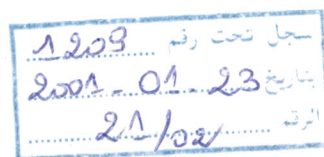 سجل تحت رقم 1209
بتاريخ 23 - 01 - 2001
الرقم 21/02